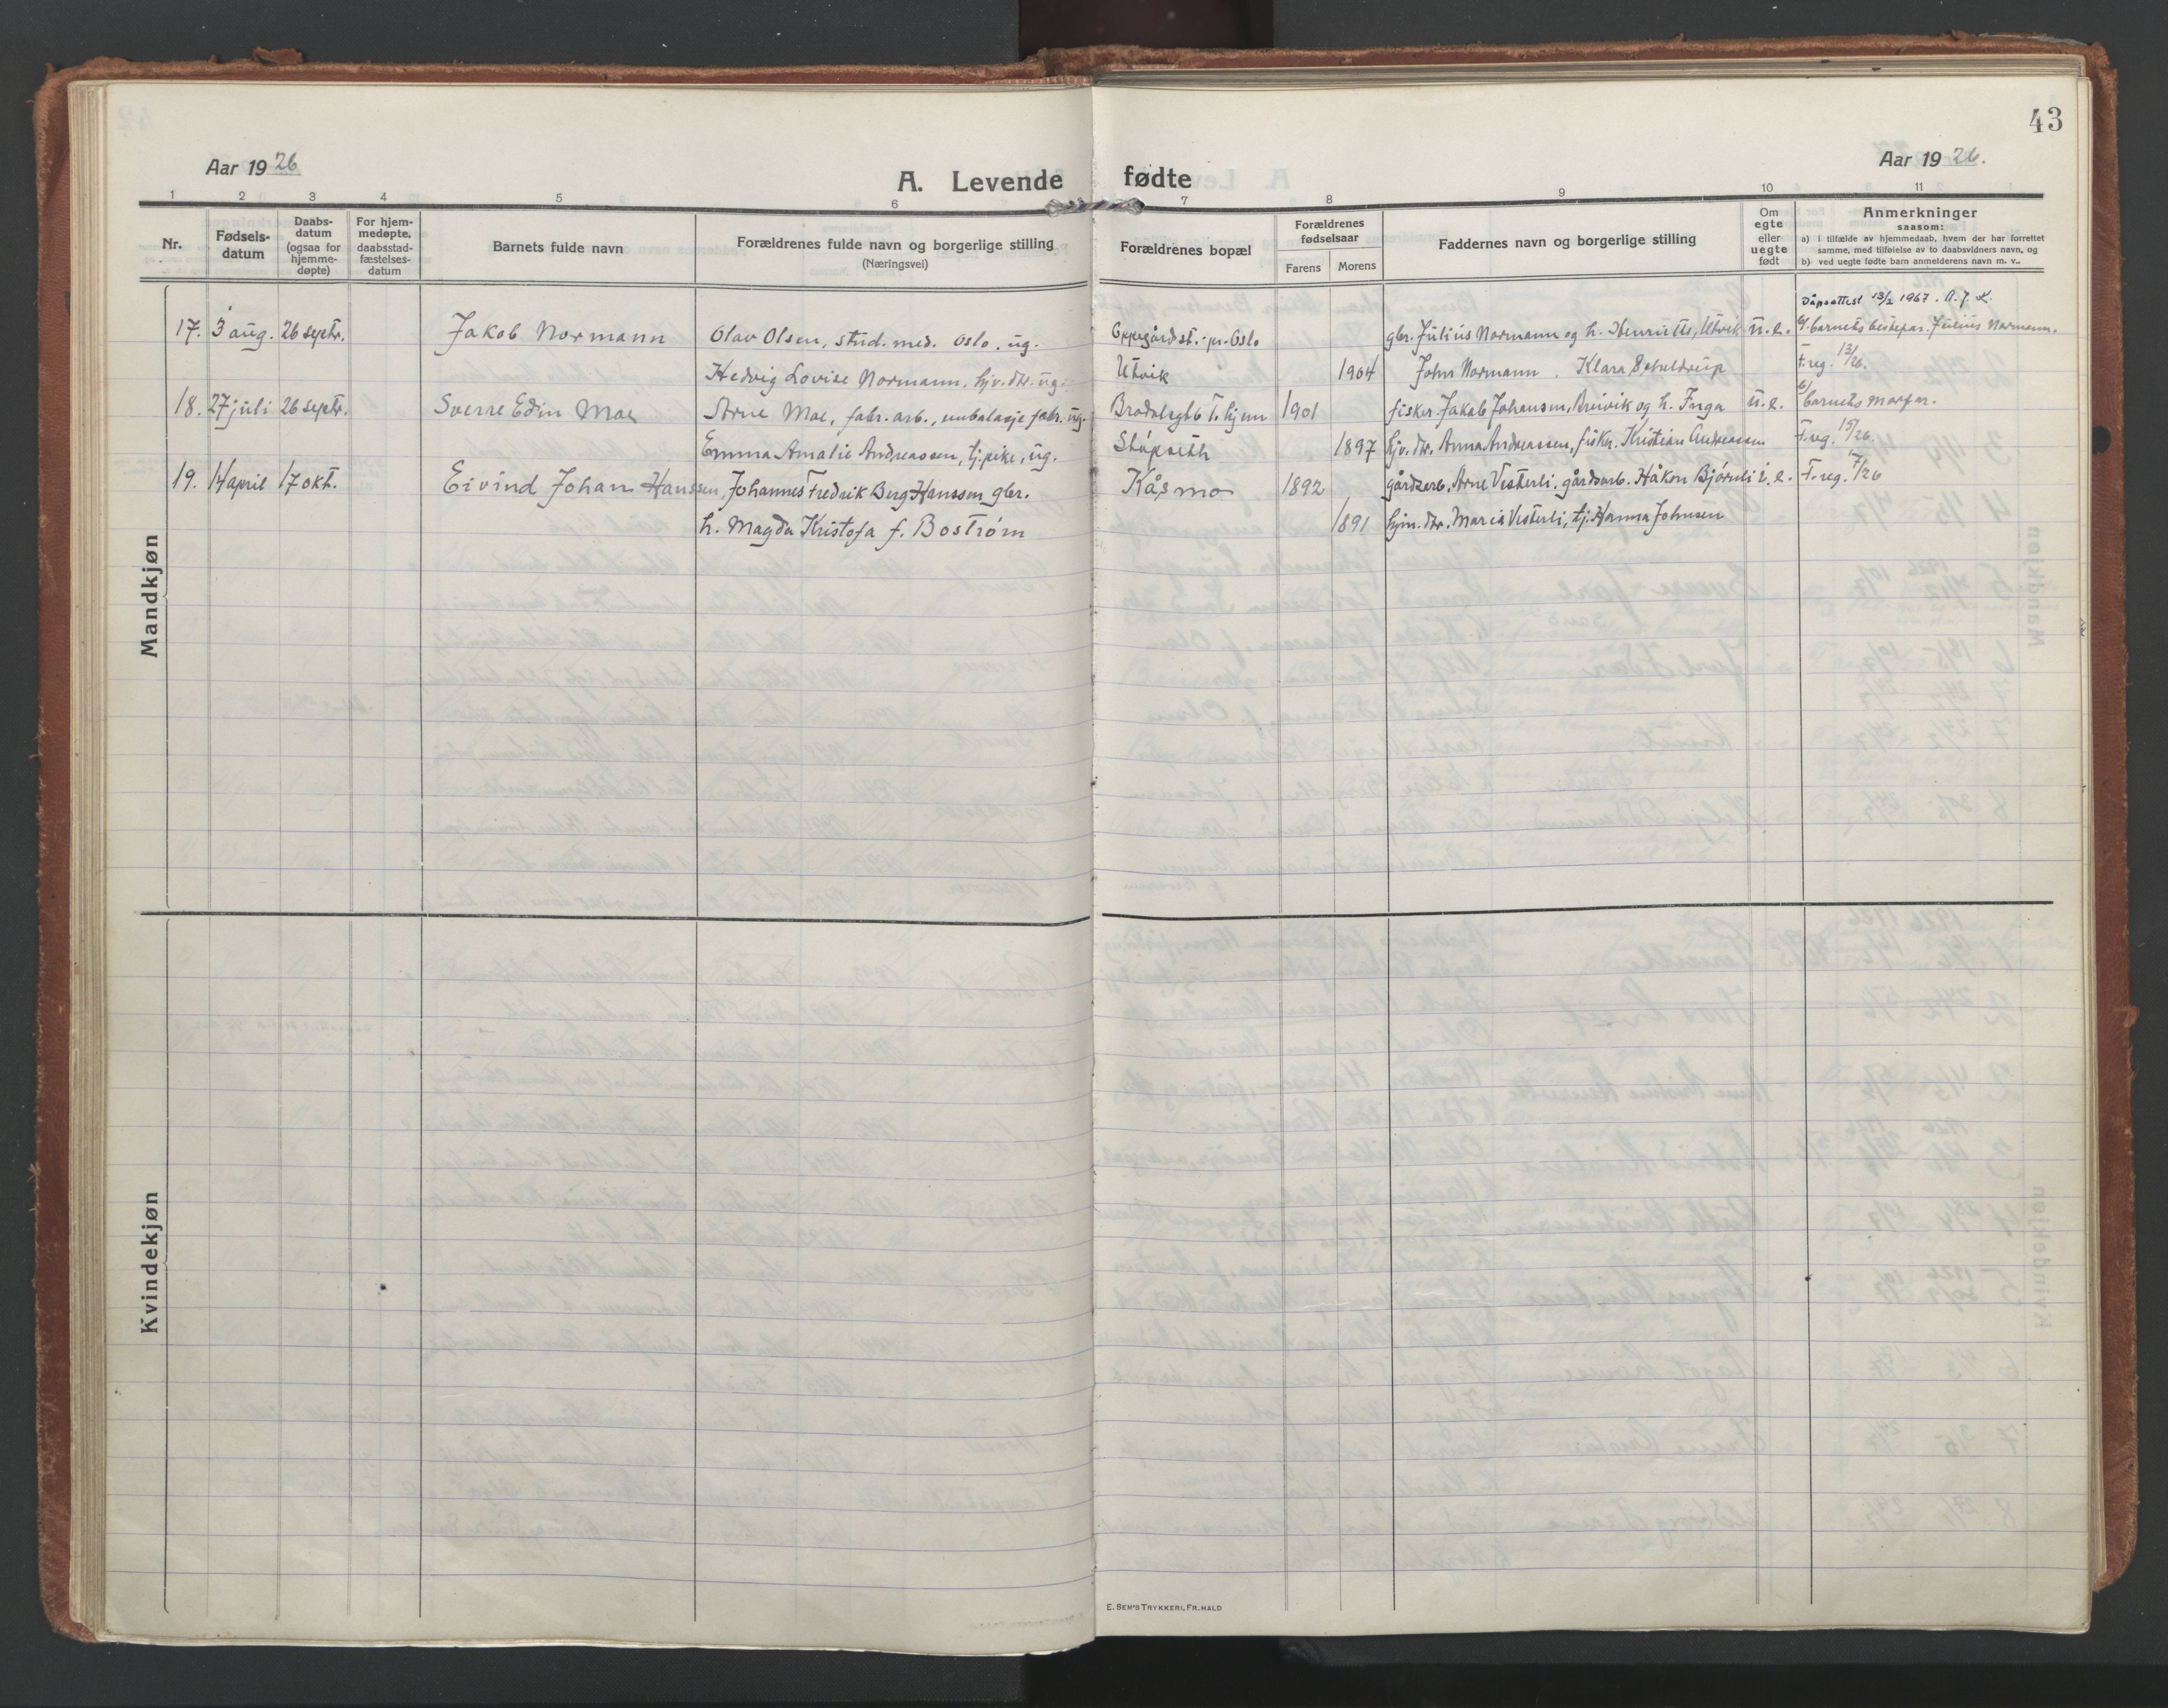 43
Aar 1926
Aar 1926.
A. Levende fødte
1 2 3 4 5 6 7 8 9 10 11
Nr.
Fødselsdatum
Daabsdatum (ogsaa for hjemmedøpte)
For hjemmedøpte, daabsstadfæstelsesdatum
Barnets fulde navn
Forældrenes fulde navn og borgerlige stilling
(Næringsvei)
Forældrenes bopæl
Forældrenes fødselsaar
Farens Morens
Faddernes navn og borgerlige stilling
Om egte eller uegte født
Anmerkninger
saasom:
a) i tilfælde av hjemmedaab, hvem der har forrettet
samme, med tilføielse av to daabsvidners navn, og
b) ved uegte fødte barn anmelderens navn m. v..
Dåpsattest 13/2 1967. A. J. K.
17. 3 aug. 26 septr. Jakob Normann Olav Olsen, stud. med. Oslo, ug. Oppegård st. pr. Oslo gbr. Julius Normann og h. Henriette, Utvik u. e. b/ barnets bestefar Julius Normann.
Hedvig Lovise Normann, hjv. dtr. ug. Utvik 1904 John Normann. Klara Scheldrup F. reg. 13/26.
18. 27 juli 26 septr. Sverre Edin Moe Arne Moe, fabr. arb., embalasje fabr. ug. 1901 fisker Jakob Johansen, Breivik og h. Inga u. e. b/ barnets morfar.
Emma Amalie Andreassen, tj. pike, ug. Slåpseth 1897 hjv. dtr. Anna Andreassen, fisker Kristian Andreassen F. reg. 15/26.
19. 14 april 17 okt. Eivind Johan Hanssen Johannes Fredrik Berg Hanssen gbr. Kåsmo 1892 gårdsarb. Arne Vesterli, gårdsarb. Håkon Bjørnli e. F. reg. 7/26
h. Magda Kristofa f. Bostrøm 1891 hjm. dtr. Maria Vesterli, tj. Hanna Johnsen
Mandkjøn
Kvindekjøn
E. SEM'S TRYKKERI, FR.HALD